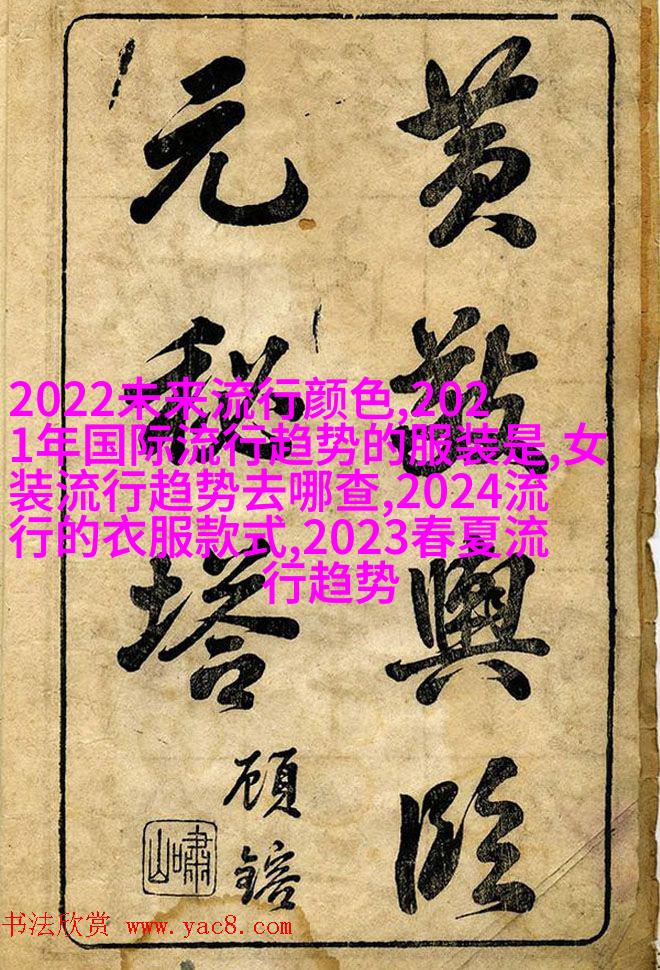 黄敬輿臨
元秘塔
顧鎔
嘯山
2022未来流行颜色,202
1年国际流行趋势的服装是,女
装流行趋势去哪查,2024流
行的衣服款式,2023春夏流
行趋势
书法欣赏 www.yac8.com